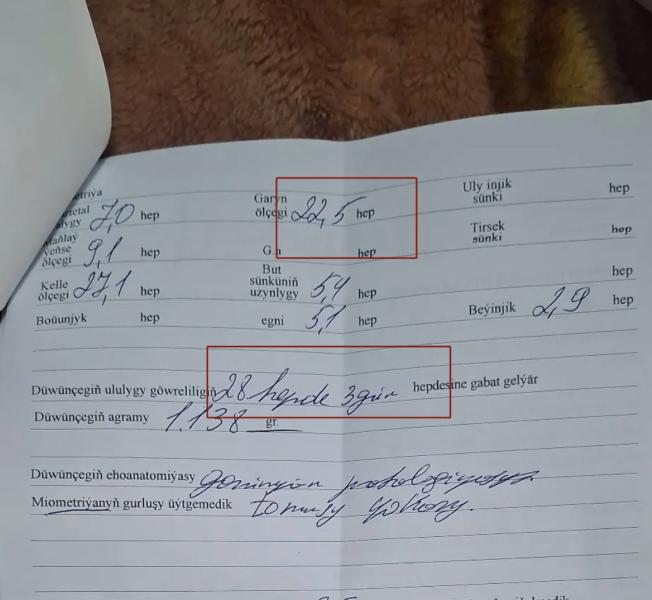 etriýa
rietal
lygy 7,0 hep Garyn
ölçegi 22,5 hep Uly injik
sünki hep
Maňlaý
ýeňse
ölçegi 9,1 hep G.h hep Tirsek
sünki hep
Kelle
ölçegi 27,1 hep But
sünküniň
uzynlygy 5,4 hep hep
Boüunjyk hep egni 5,1 hep Beýinjik 2,9 hep
Düwünçegiň ululygy göwreliligiň 28 hepde 3 gün hepdesine gabat gelýär
Düwünçegiň agramy 1.138 gr.
Düwünçegiň ehoanatomiýasy patologiyasyz
Miometriýanyň gurluşy üýtgemedik tonusy ýokary.